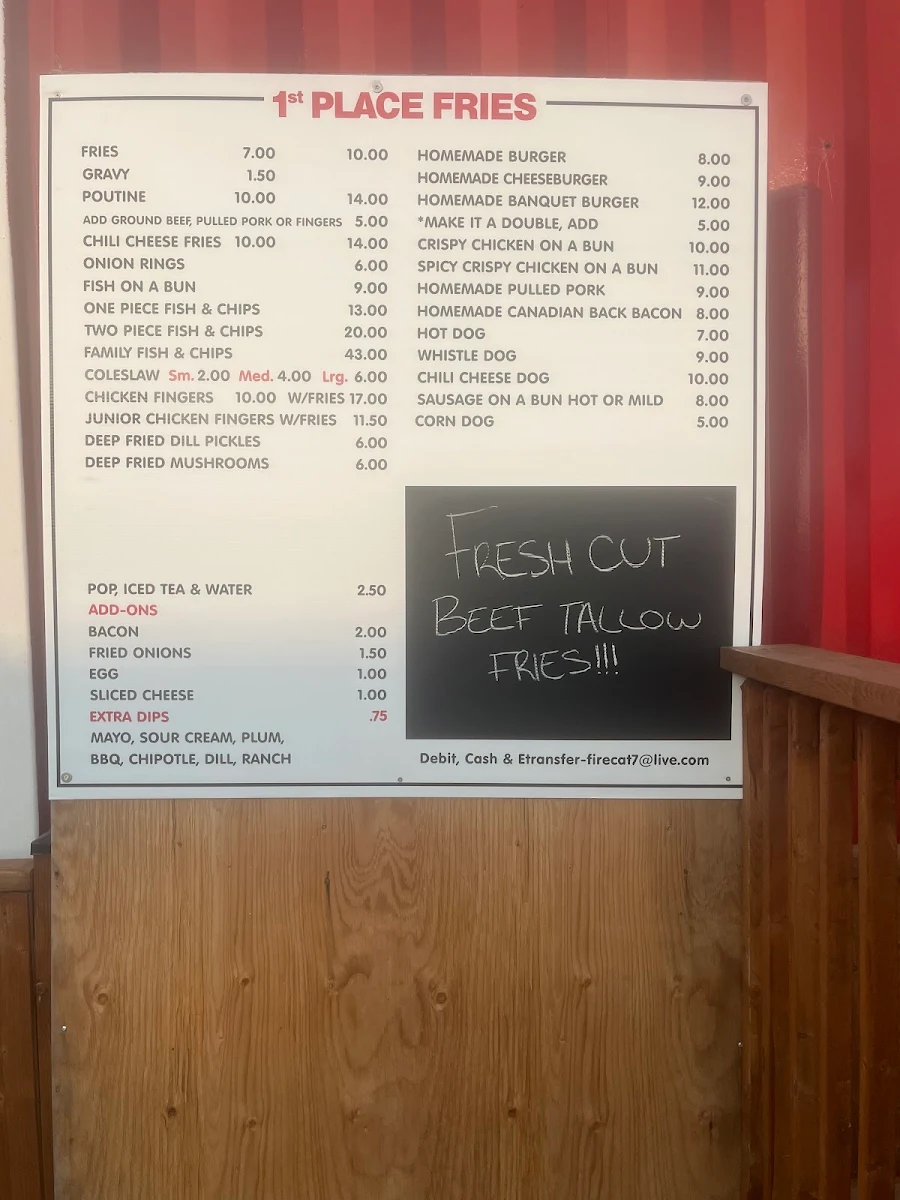 1st PLACE FRIES
FRIES 7.00 10.00
GRAVY 1.50
POUTINE 10.00 14.00
ADD GROUND BEEF, PULLED PORK OR FINGERS 5.00
CHILI CHEESE FRIES 10.00 14.00
ONION RINGS 6.00
FISH ON A BUN 9.00
ONE PIECE FISH & CHIPS 13.00
TWO PIECE FISH & CHIPS 20.00
FAMILY FISH & CHIPS 43.00
COLESLAW Sm. 2.00 Med. 4.00 Lrg. 6.00
CHICKEN FINGERS 10.00 W/FRIES 17.00
JUNIOR CHICKEN FINGERS W/FRIES 11.50
DEEP FRIED DILL PICKLES 6.00
DEEP FRIED MUSHROOMS 6.00
POP, ICED TEA & WATER 2.50
ADD-ONS
BACON 2.00
FRIED ONIONS 1.50
EGG 1.00
SLICED CHEESE 1.00
EXTRA DIPS .75
MAYO, SOUR CREAM, PLUM,
BBQ, CHIPOTLE, DILL, RANCH
HOMEMADE BURGER 8.00
HOMEMADE CHEESEBURGER 9.00
HOMEMADE BANQUET BURGER 12.00
*MAKE IT A DOUBLE, ADD 5.00
CRISPY CHICKEN ON A BUN 10.00
SPICY CRISPY CHICKEN ON A BUN 11.00
HOMEMADE PULLED PORK 9.00
HOMEMADE CANADIAN BACK BACON 8.00
HOT DOG 7.00
WHISTLE DOG 9.00
CHILI CHEESE DOG 10.00
SAUSAGE ON A BUN HOT OR MILD 8.00
CORN DOG 5.00
FRESH CUT
BEEF TALLOW
FRIES!!!
Debit, Cash & Etransfer-firecat7@live.com